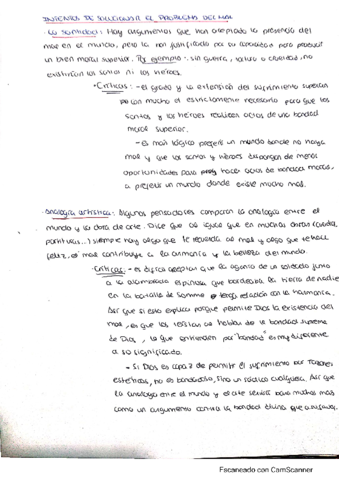 INTENTOS DE SOLUCIONAR EL PROBLEMA DEL MAL
· La santidad: Hay argumentos que han aceptado la presencia del
mal en el mundo, pero la han justificado por su capacidad para producir
un bien moral superior. Por ejemplo: sin guerra, tortura o crueldad, no
existirían los santos ni los héroes.
· Críticas: - el grado y la extensión del sufrimiento superan
por con mucho el estrictamente necesario para que los
santos y los héroes realicen actos de una bondad
moral superior.
- es más lógico preferir un mundo donde no haya
mal y que los santos y héroes dispongan de menos
oportunidades para hacer actos de bondad moral,
a preferir un mundo donde existe mucho mal.
· Analogía artística: Algunos pensadores comparan la analogía entre el
mundo y la obra de arte. Dice que al igual que en muchas obras (cuadros,
partituras...) siempre hay algo que te recuerda al mal y algo que te hace
feliz, el mal contribuye a la armonía y la belleza del mundo.
· Críticas: - es difícil aceptar que la agonía de un soldado junto
a la alambrada espinosa que bordeaba la tierra de nadie
en la batalla de Somme tenga relación con la harmonía.
Así que si esto explica porque permite Dios la existencia del
mal, es que los teístas al hablar de la bondad suprema
de Dios, lo que entienden por "bondad" es muy diferente
a su significado.
- Si Dios es capaz de permitir el sufrimiento por razones
estéticas, no es bondadoso, sino un sádico cualquiera. Así que
la analogía entre el mundo y el arte serviría para muchos más
como un argumento contra la bondad divina que a su favor.
Escaneado con CamScanner